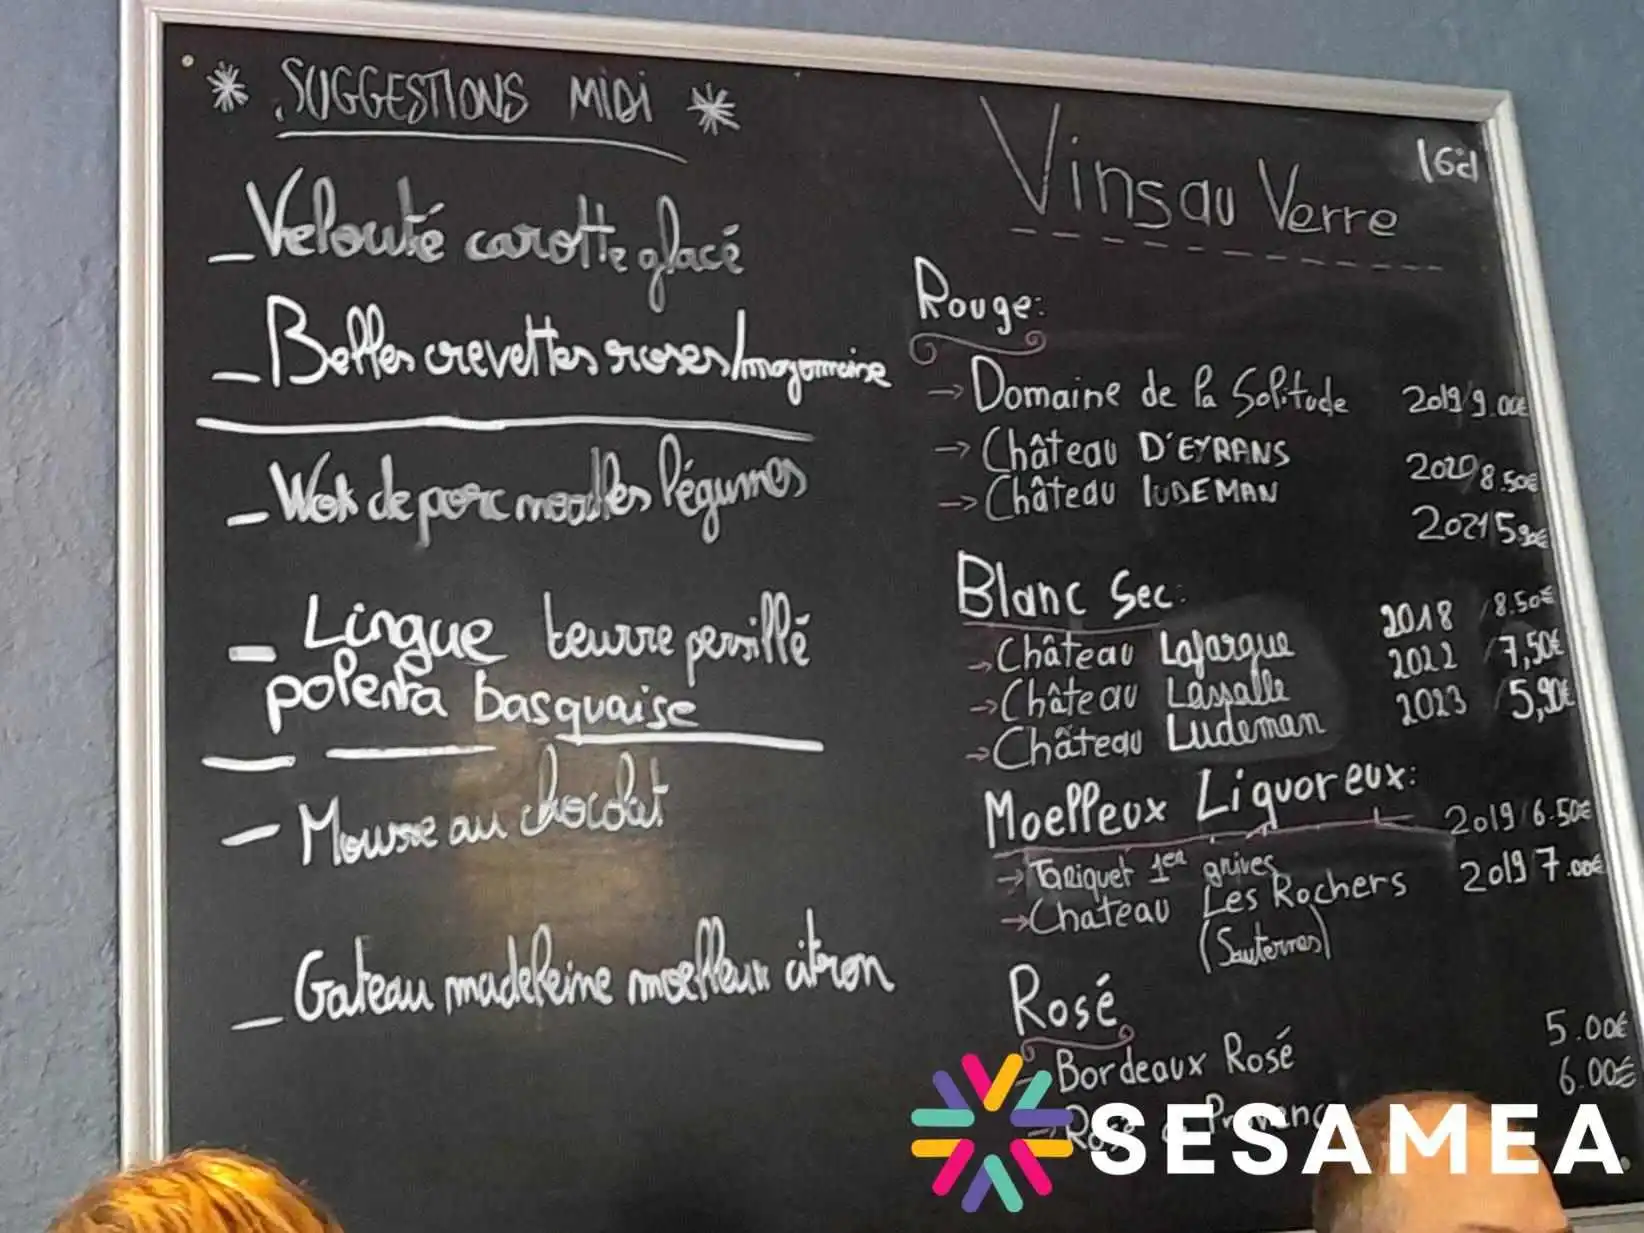 * SUGGESTIONS MIDI *
- Velouté carotte glacé
- Belles crevettes roses/mayonnaise
- Wok de porc noodles légumes
- Lingue beurre persillé
polenta basquaise
- Mousse au chocolat
- Gateau madeleine moelleux citron
Vins au Verre
16cl
Rouge:
→ Domaine de la Solitude 2019/9.00€
→ Château D'EYRANS 2020/8.50€
→ Château luDEMAN 2021/5.90€
Blanc Sec:
→ Château Lafargue 2018 /8.50€
→ Château Lassalle 2022 /7,50€
→ Château Ludeman 2023 /5,90€
Moelleux Liquoreux:
→ Tariquet 1er grives 2019/6.50€
→ Chateau Les Rochers 2019 7.00€
(Sauternes)
Rosé
Bordeaux Rosé 5.00€
→ Provence 6.00€
SESAMEA